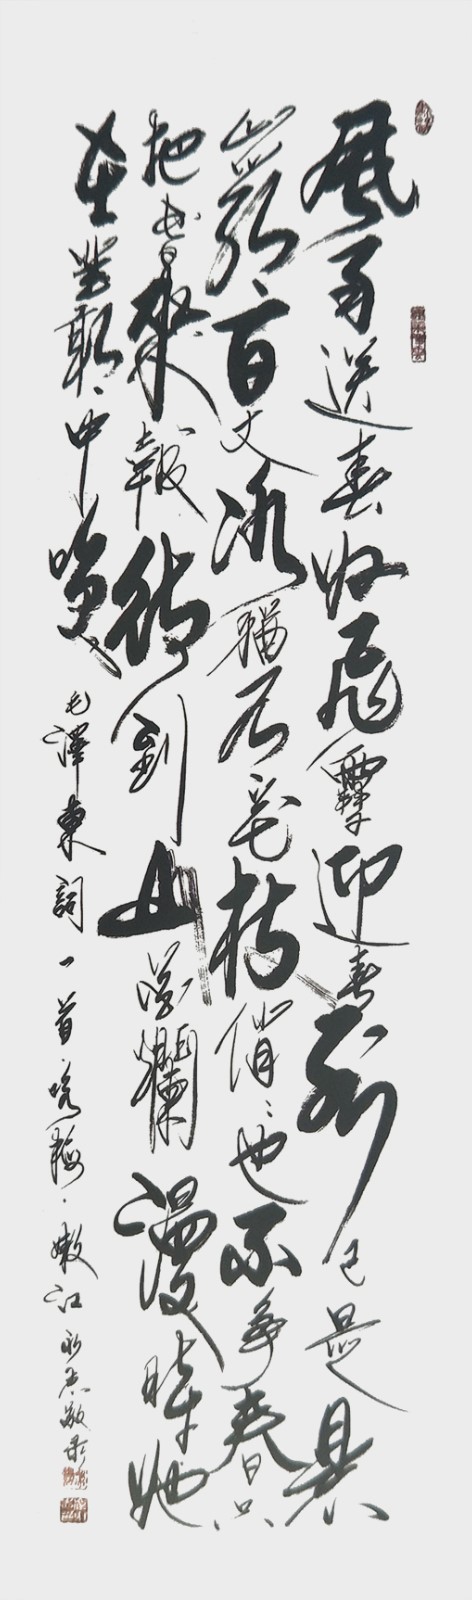 風雨送春归飛雪迎春到已是悬
崖百丈冰猶有花枝俏〻也不争春只
把春来報待到山花爛漫時她
在叢中笑
毛澤東詞一首·咏梅·嫩江永志敬录